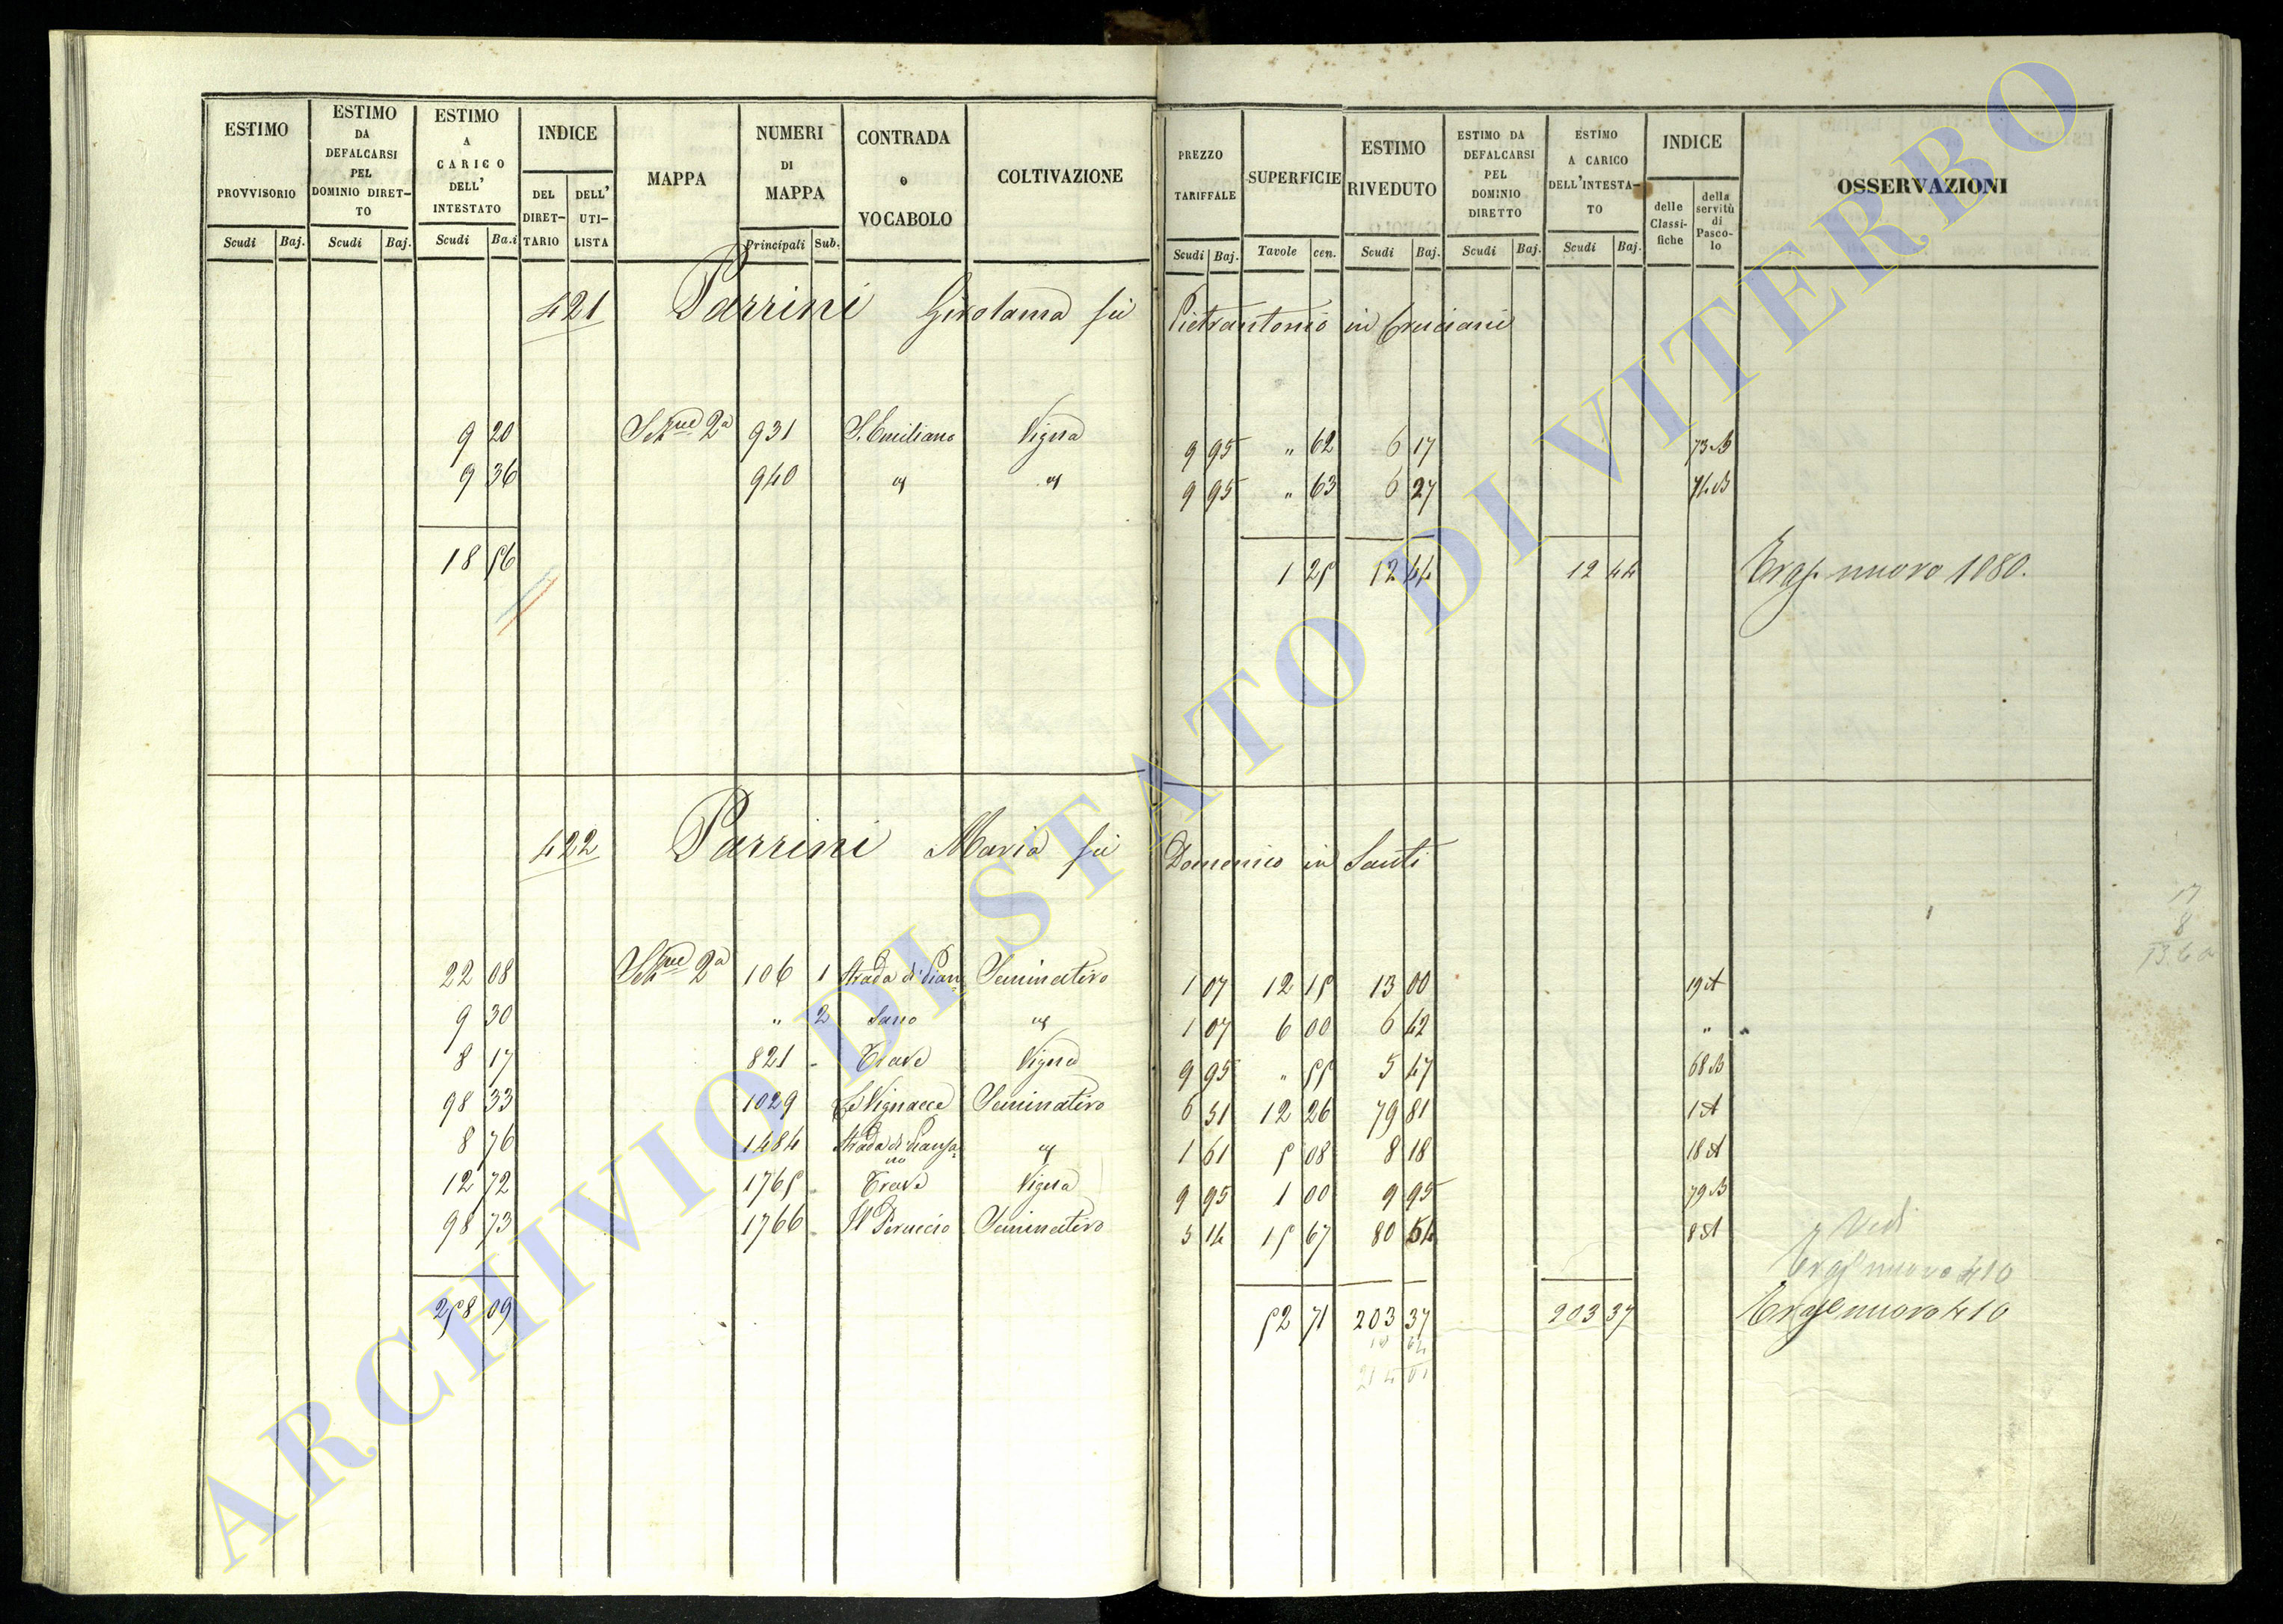 ESTIMO PROVVISORIO
ESTIMO DA DEFALCARSI PEL DOMINIO DIRETTO
ESTIMO A CARICO DELL' INTESTATO
INDICE
DEL DIRETTARIO
DELL' UTILISTA
MAPPA
NUMERI DI MAPPA
CONTRADA o VOCABOLO
COLTIVAZIONE
PREZZO TARIFFALE
SUPERFICIE
ESTIMO RIVEDUTO
ESTIMO DA DEFALCARSI PEL DOMINIO DIRETTO
ESTIMO A CARICO DELL'INTESTATO
INDICE
delle Classifiche
della servitù di Pascolo
OSSERVAZIONI
Scudi Baj. Scudi Baj. Scudi Ba.i Principali Sub. Scudi Baj. Tavole cen. Scudi Baj. Scudi Baj. Scudi Baj.
421 Parrini Girolama fu Pietrantonio in Cruciani
9 20 Sez.ne 2a 931 S. Emiliano Vigna 9 95 " 62 6 17 73 B
9 36 940 " " 9 95 " 63 6 27 74 B
18 56 1 25 12 44 12 44 Trasp. nuovo 1080.
422 Parrini Maria fu Domenico in Santi
22 08 Sez.ne 2a 106 1 Strada di Pian- Seminativo 1 07 12 15 13 00 19 A
9 30 " 2 sano " 1 07 6 00 6 42 "
8 17 821 - Trave Vigna 9 95 " 55 5 47 68 B
98 33 1029 Le Vignacce Seminativo 6 51 12 26 79 81 1 A
8 76 1484 Strada di Piansano " 1 61 5 08 8 18 18 A
12 72 1765 - Trave Vigna 9 95 1 00 9 95 79 B
98 73 1766 - Il Peruccio Seminativo 5 14 15 67 80 54 8 A
Vedi
Trasp nuovo 410
258 09 52 71 203 37 203 37 Trasp nuovo 410
17
8
ARCHIVIO DI STATO DI VITERBO